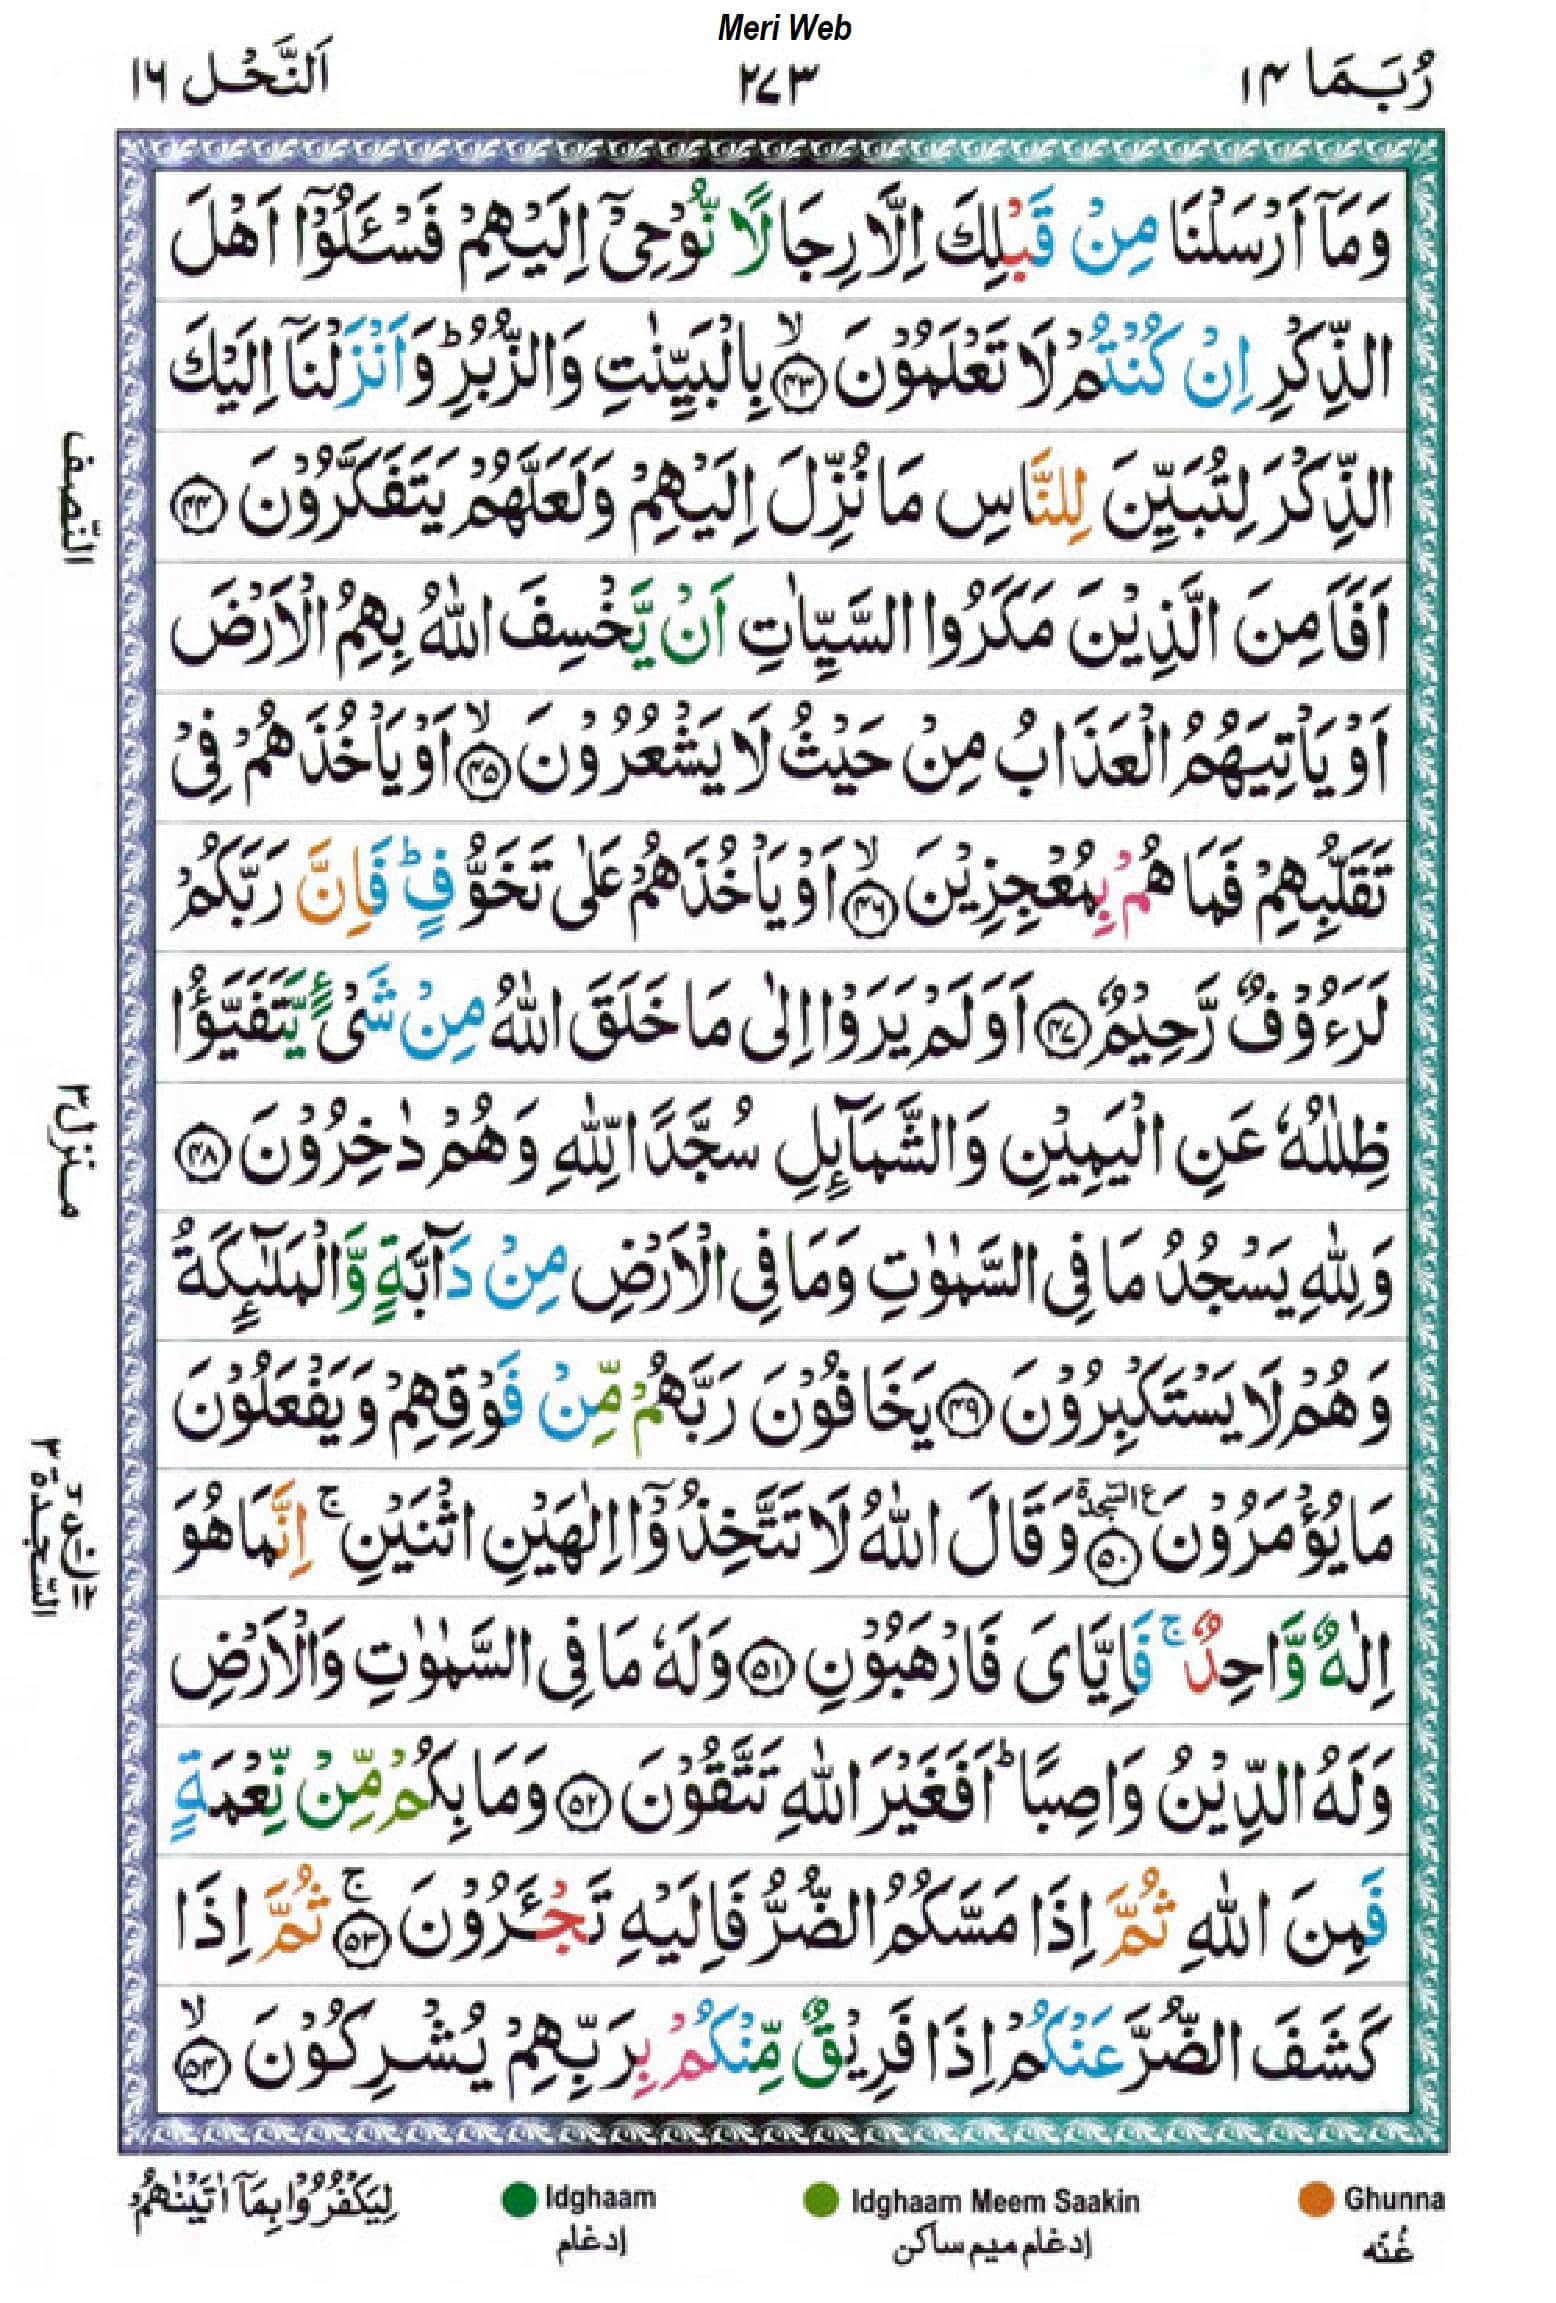 Meri Web
رُبَمَا ١٤
٢٧٣
اَلنَّحْل ١٦
وَمَاۤ اَرْسَلْنَا مِنْ قَبْلِكَ اِلَّا رِجَالًا نُّوْحِیْۤ اِلَیْهِمْ فَسْـَٔلُوْۤا اَهْلَ
الذِّكْرِ اِنْ كُنْتُمْ لَا تَعْلَمُوْنَ ۙ﴿۴۳﴾ بِالْبَیِّنٰتِ وَالزُّبُرِ ؕ وَاَنْزَلْنَاۤ اِلَیْكَ
الذِّكْرَ لِتُبَیِّنَ لِلنَّاسِ مَا نُزِّلَ اِلَیْهِمْ وَلَعَلَّهُمْ یَتَفَكَّرُوْنَ ﴿۴۴﴾
اَفَاَمِنَ الَّذِیْنَ مَكَرُوا السَّیِّاٰتِ اَنْ یَّخْسِفَ اللّٰهُ بِهِمُ الْاَرْضَ
اَوْ یَاْتِیَهُمُ الْعَذَابُ مِنْ حَیْثُ لَا یَشْعُرُوْنَ ۙ﴿۴۵﴾ اَوْ یَاْخُذَهُمْ فِیْ
تَقَلُّبِهِمْ فَمَا هُمْ بِمُعْجِزِیْنَ ۙ﴿۴۶﴾ اَوْ یَاْخُذَهُمْ عَلٰی تَخَوُّفٍ ؕ فَاِنَّ رَبَّكُمْ
لَرَءُوْفٌ رَّحِیْمٌ ﴿۴۷﴾ اَوَلَمْ یَرَوْا اِلٰی مَا خَلَقَ اللّٰهُ مِنْ شَیْءٍ یَّتَفَیَّؤُا
ظِلٰلُهٗ عَنِ الْیَمِیْنِ وَالشَّمَآىِٕلِ سُجَّدًا لِّلّٰهِ وَهُمْ دٰخِرُوْنَ ﴿۴۸﴾
وَلِلّٰهِ یَسْجُدُ مَا فِی السَّمٰوٰتِ وَمَا فِی الْاَرْضِ مِنْ دَآبَّةٍ وَّالْمَلٰٓىِٕكَةُ
وَهُمْ لَا یَسْتَكْبِرُوْنَ ﴿۴۹﴾ یَخَافُوْنَ رَبَّهُمْ مِّنْ فَوْقِهِمْ وَیَفْعَلُوْنَ
مَا یُؤْمَرُوْنَ ﴿۵۰﴾ ع السجدة وَقَالَ اللّٰهُ لَا تَتَّخِذُوْۤا اِلٰهَیْنِ اثْنَیْنِ ۚ اِنَّمَا هُوَ
اِلٰهٌ وَّاحِدٌ ۚ فَاِیَّایَ فَارْهَبُوْنِ ﴿۵۱﴾ وَلَهٗ مَا فِی السَّمٰوٰتِ وَالْاَرْضِ
وَلَهُ الدِّیْنُ وَاصِبًا ؕ اَفَغَیْرَ اللّٰهِ تَتَّقُوْنَ ﴿۵۲﴾ وَمَا بِكُمْ مِّنْ نِّعْمَةٍ
فَمِنَ اللّٰهِ ثُمَّ اِذَا مَسَّكُمُ الضُّرُّ فَاِلَیْهِ تَجْـَٔرُوْنَ ۚ﴿۵۳﴾ ثُمَّ اِذَا
كَشَفَ الضُّرَّ عَنْكُمْ اِذَا فَرِیْقٌ مِّنْكُمْ بِرَبِّهِمْ یُشْرِكُوْنَ ۙ﴿۵۴﴾
النّصف
منزل ٣
السّجدة ٣
Ghunna
غُنّه
Idghaam Meem Saakin
إدغام میم ساکن
Idghaam
إدغام
لِیَكْفُرُوْا بِمَاۤ اٰتَیْنٰهُمْ